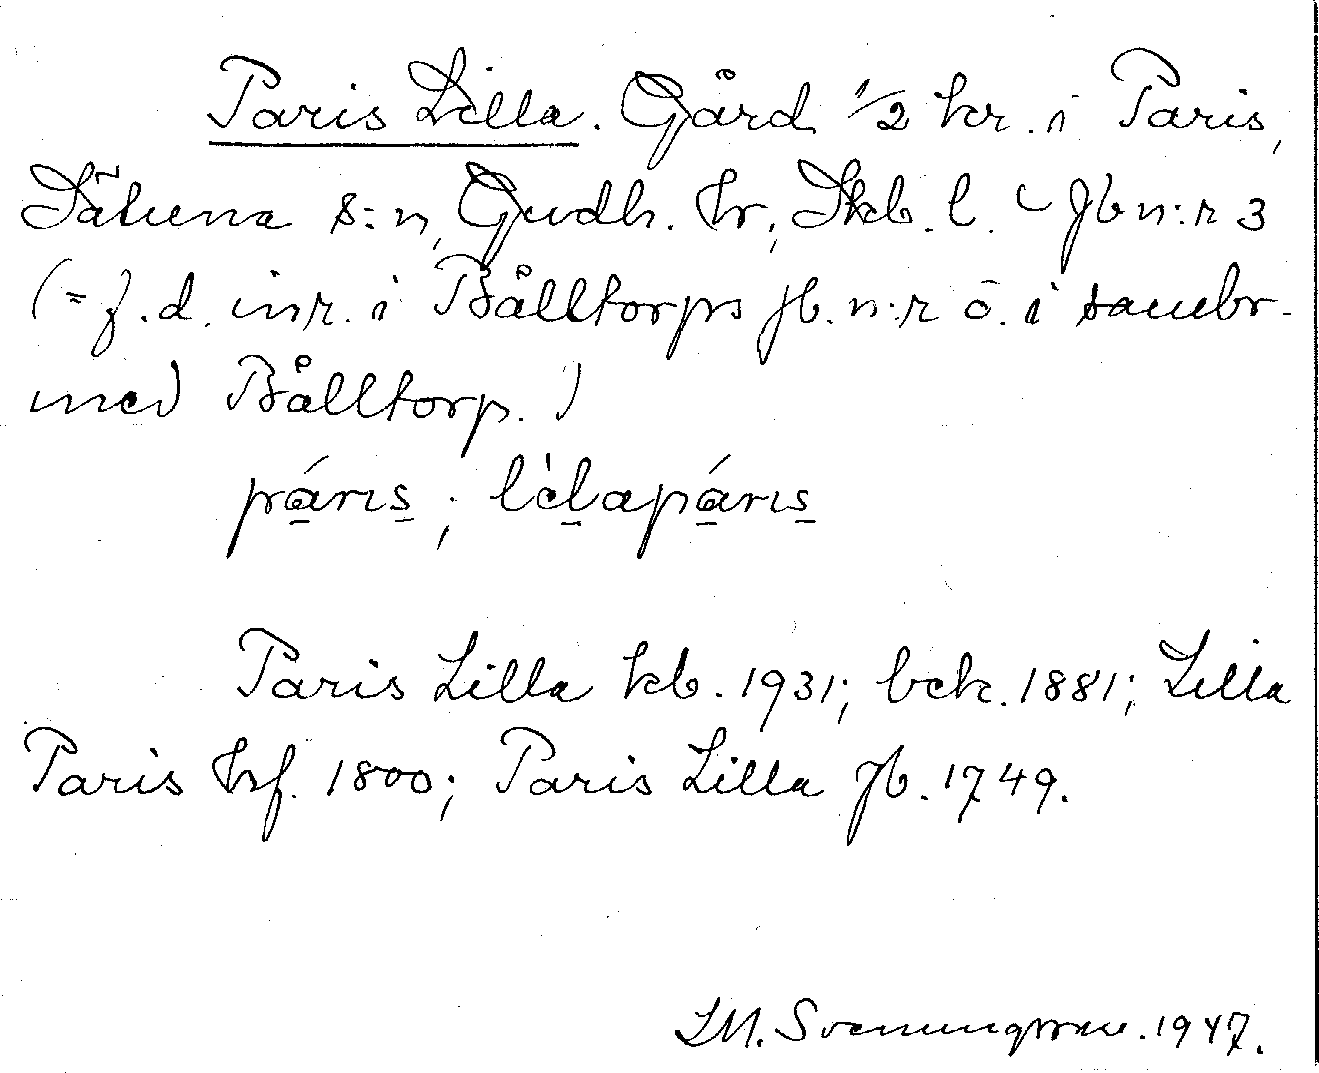 Paris Lilla. Gård 1/2 kr. i Paris,
Sätuna s:n, Gudh. hr, Skb. l. Jb n:r 3
(= f. d. inr. i Bålltorps jb. n:r ö. i sambr.
med Bålltorp.)
páris; lèlapáris
Paris Lilla kb. 1931; bek. 1881; Lilla
Paris hf. 1800; Paris Lilla Jb. 1749.
Svenungsson. 1947.